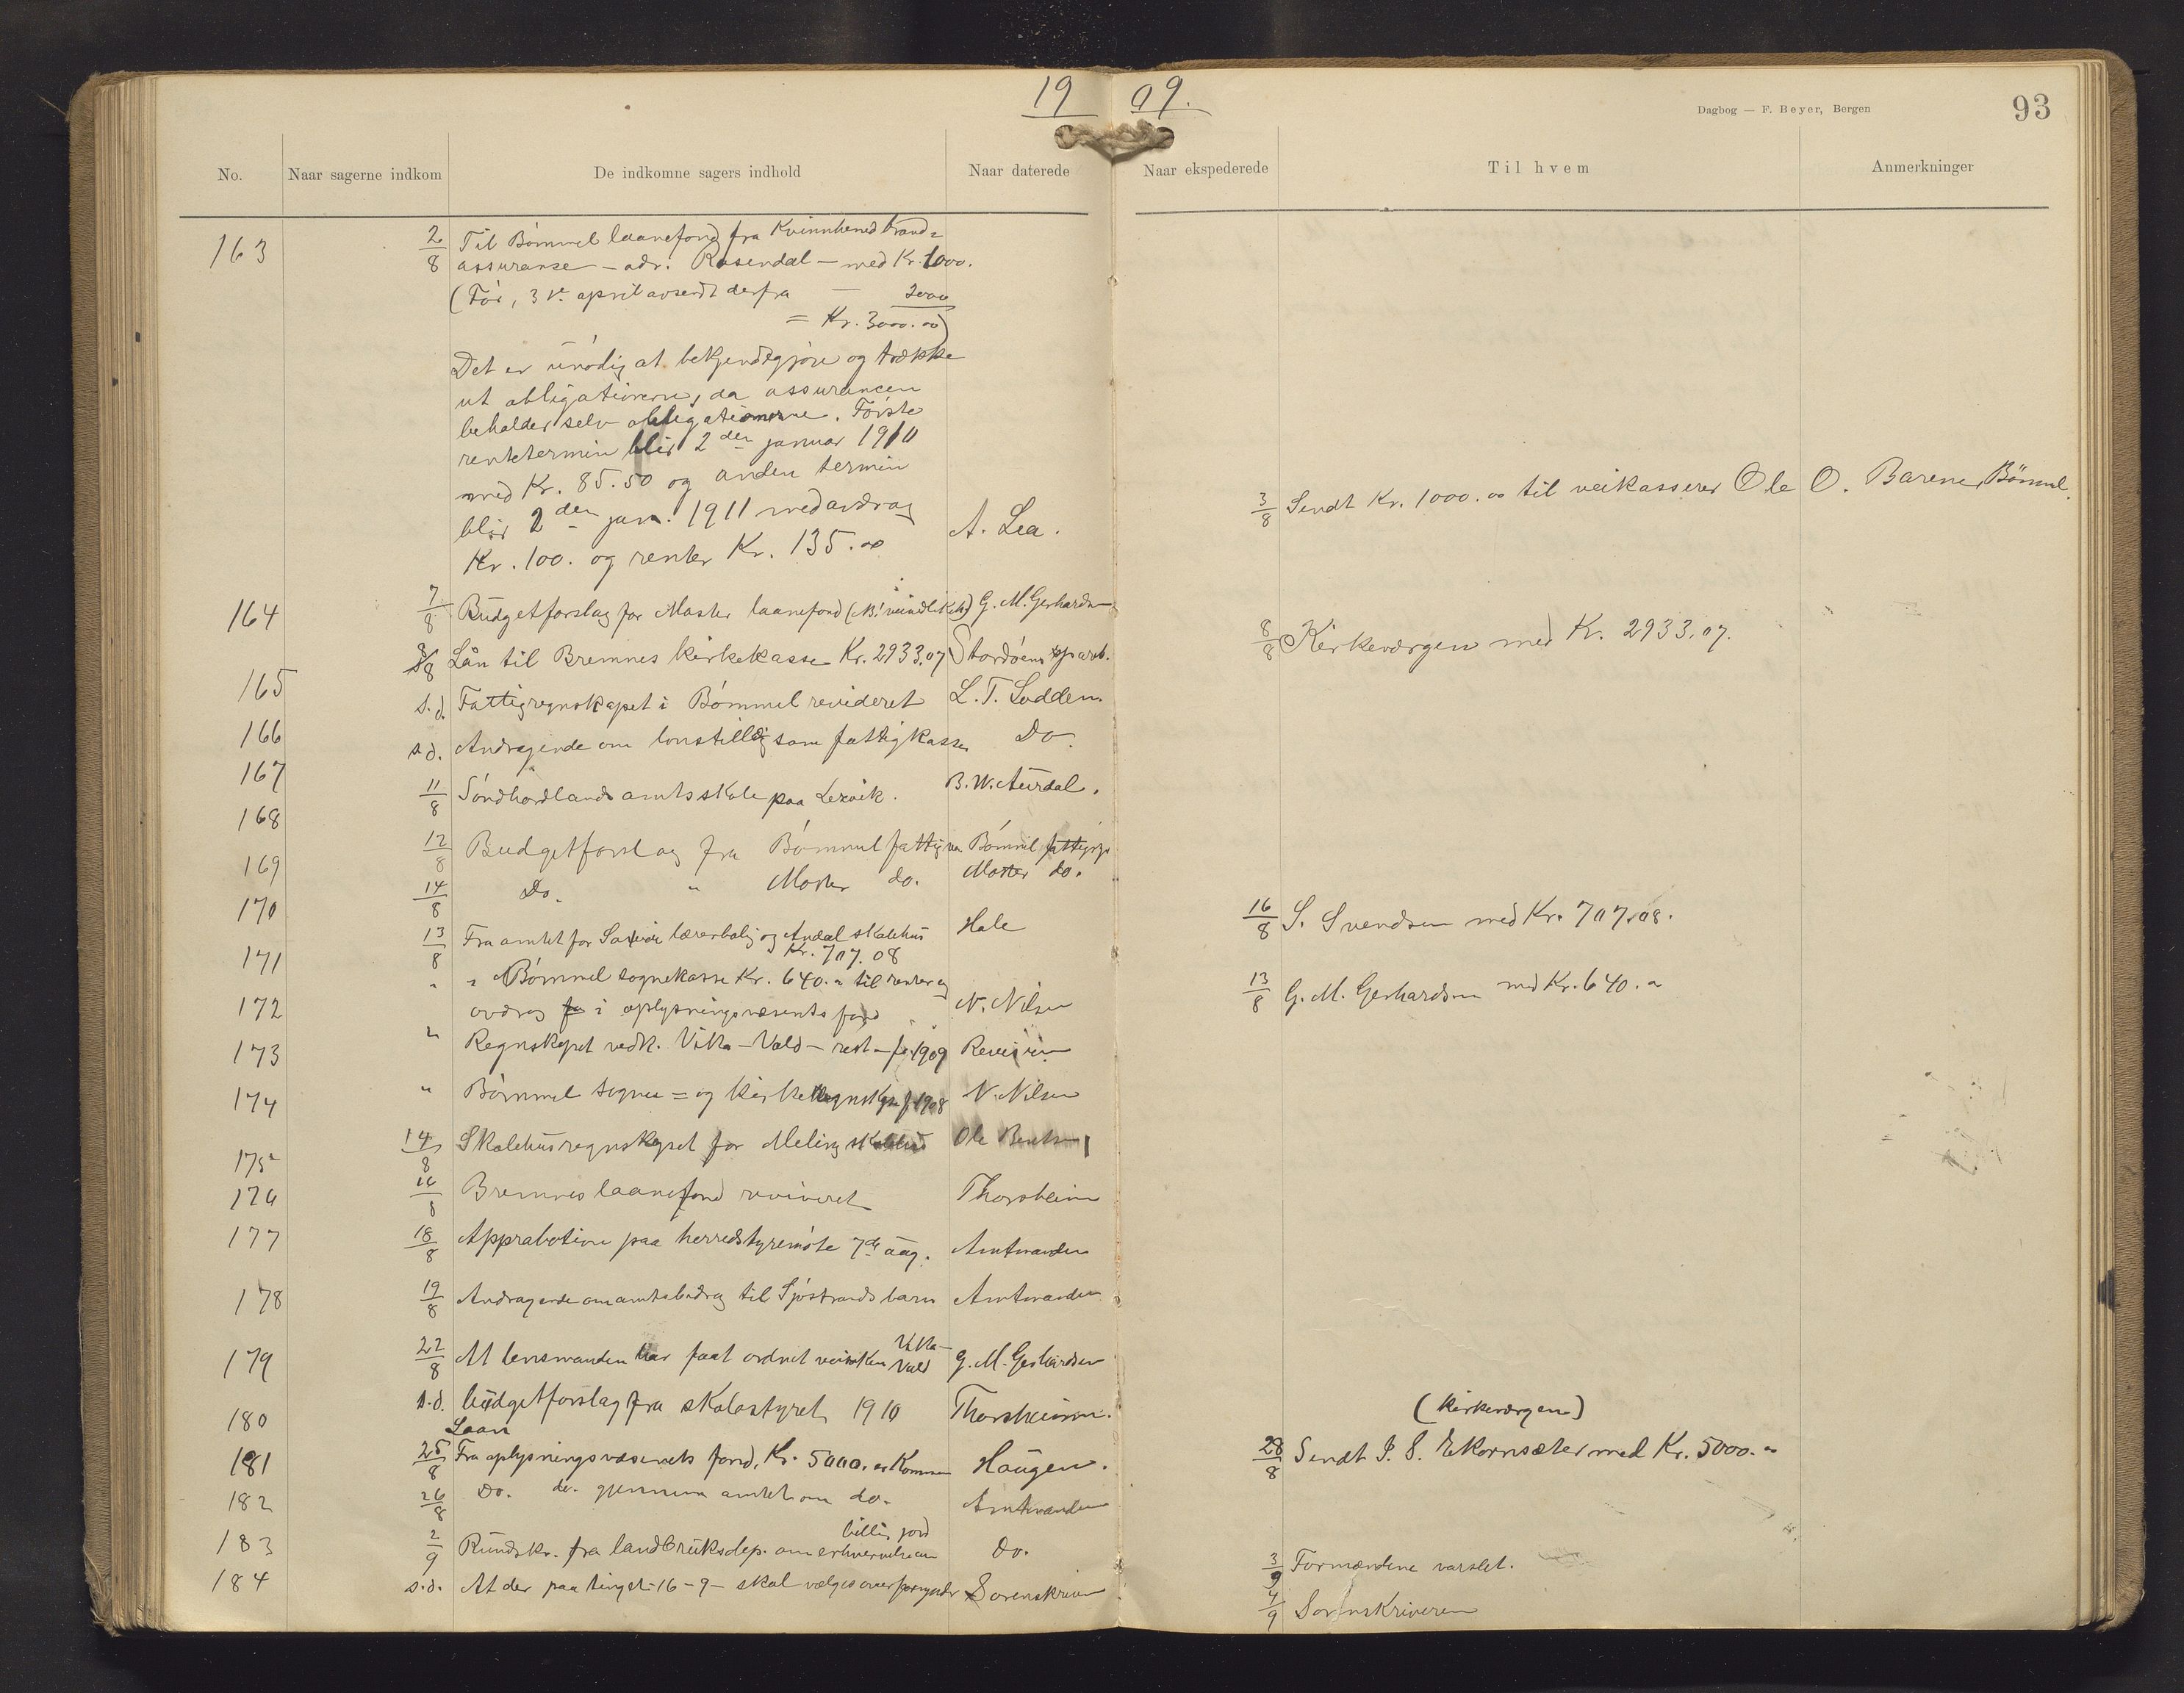 19 09.
Dagbog — F. Beyer, Bergen
93
No.
Naar sagerne indkom
De indkomne sagers indhold
Naar daterede
Naar ekspederede
Til hvem
Anmerkninger
163 2/8 Til Bømmel laanefond fra Kvinnhered brand=
assuranse — adr. Rosendal — med Kr. 1000.
(Før, 3de april avsendt derfra — 2000
= Kr. 3000.00)
Det er unødig at bekjendtgjøre og trække
ut obligationerne, da assurancen
beholder selv obligationerne. Første
rentetermin blir 2den januar 1910
med Kr. 85.50 og anden termin
blir 2den jan. 1911 med avdrag
Kr. 100. og renter Kr. 135.00 A. Lea.
3/8 Sendt Kr. 1000.00 til veikasserer Ole O. Barene, Bömmel.
164 7/8 Budgetforslag for Moster laanefond G. M. Gerhardsen
165 8/8 Lån til Bremnes kirkekasse Kr. 2933.07 Stordøens spareb.
8/8 Kirkeværgen med Kr. 2933,07.
166 s.d. Fattigregnskapet i Bømmel revideret L. T. Lodden.
167 s.d. Andragende om lønstillæg som fattigkasser Do.
168 11/8 Søndhordlands amtsskole paa Lervik. B. W. Aurdal.
169 12/8 Budgetforslag fra Bømmel fattigv. Bømmel fattigv.
170 14/8 Do. " Moster do. Moster do.
171 13/8 Fra amtet for lærerbolig og Andal skolehus Hole
Kr. 707.08
16/8 S. Svendsen med Kr. 707,08.
172 " " Bømmel sognekasse Kr. 640.- til renter og
avdrag i oplysningsvæsenets fond N. Nilsen
13/8 G. M. Gerhardsen med Kr. 640.-
173 " Regnskapet vedk. Vika-Vald - rest - f. 1909 Revision
174 " Bømmel sogne= og kirkeregnskap f. 1908 N. Nilsen
175 14/8 Skolehusregnskapet for Meling skolehus Ole Bentsen
176 16/8 Bremnes laanefond revideret Thorsheim
177 18/8 Approbation paa herredstyremøte 7de aug. Amtmanden
178 19/8 Andragende om amtsbidrag til Sjøstrands barn Amtmanden
179 22/8 At lensmanden har faat ordnet veisaken Vika-Vald G. M. Gerhardsen
180 s.d. Budgetforslag fra skolestyret 1910 Thorsheim.
181 25/8 Laan Fra oplysningsvæsenets fond, Kr. 5000.00 Kommen Haugen.
(kirkeværgen)
28/8 Sendt P. S. Ekornsæter med Kr. 5000.-
182 26/8 Do. do. gjennem amtet om do. Amtmanden
183 2/9 Rundskr. fra landbruksdep. om erhvervelse av billig jord Do.
3/9 Formændene varslet.
184 s.d. At der paa tinget 16-9- skal vælges overformynder Sorenskriver
4/9 Sorenskriveren